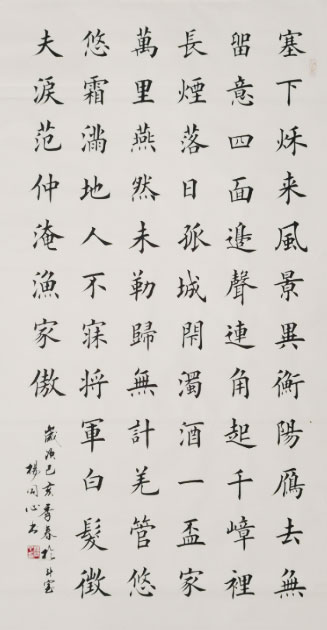 塞下秌来風景異衡陽鴈去無
留意四面邉聲連角起千嶂裡
長煙落日孤城閇濁酒一盃家
萬里燕然未勒歸無計羌管悠
悠霜滿地人不寐将軍白髮徵
夫淚范仲淹漁家傲
歲次己亥春於斗室
楊同心